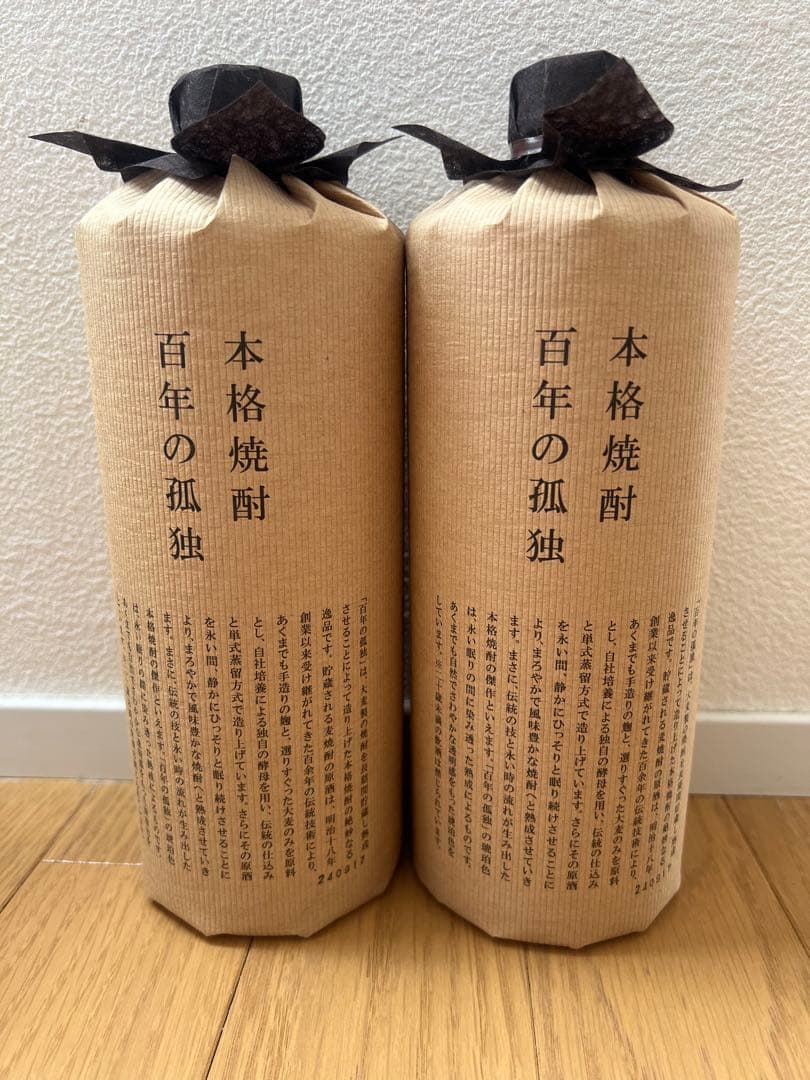 本格焼酎
百年の孤独
「百年の孤独」は、大麦製の焼酎を長期間貯蔵し熟成
させることによって造り上げた本格焼酎の絶妙なる
逸品です。貯蔵される麦焼酎の原酒は、明治十八年
創業以来受け継がれてきた百余年の伝統技術により、
あくまでも手造りの麹と、選りすぐった大麦のみを原料
とし、自社培養による独自の酵母を用い、伝統の仕込み
と単式蒸留方式で造り上げています。さらにその原酒
を永い間、静かにひっそりと眠り続けさせることに
より、まろやかで風味豊かな焼酎へと熟成させていき
ます。まさに、伝統の技と永い時の流れが生み出した
本格焼酎の傑作といえます。「百年の孤独」の琥珀色
は、永い眠りの間に染み透った熟成によるものです。
240917
本格焼酎
百年の孤独
「百年の孤独」は、大麦製の焼酎を長期間貯蔵し熟成
させることによって造り上げた本格焼酎の絶妙なる
逸品です。貯蔵される麦焼酎の原酒は、明治十八年
創業以来受け継がれてきた百余年の伝統技術により、
あくまでも手造りの麹と、選りすぐった大麦のみを原料
とし、自社培養による独自の酵母を用い、伝統の仕込み
と単式蒸留方式で造り上げています。さらにその原酒
を永い間、静かにひっそりと眠り続けさせることに
より、まろやかで風味豊かな焼酎へと熟成させていき
ます。まさに、伝統の技と永い時の流れが生み出した
本格焼酎の傑作といえます。「百年の孤独」の琥珀色
は、永い眠りの間に染み透った熟成によるものです。
あくまでも自然でさわやかな透明感をもった琥珀色を
しています。※二十歳未満の飲酒は禁じられています。
240917